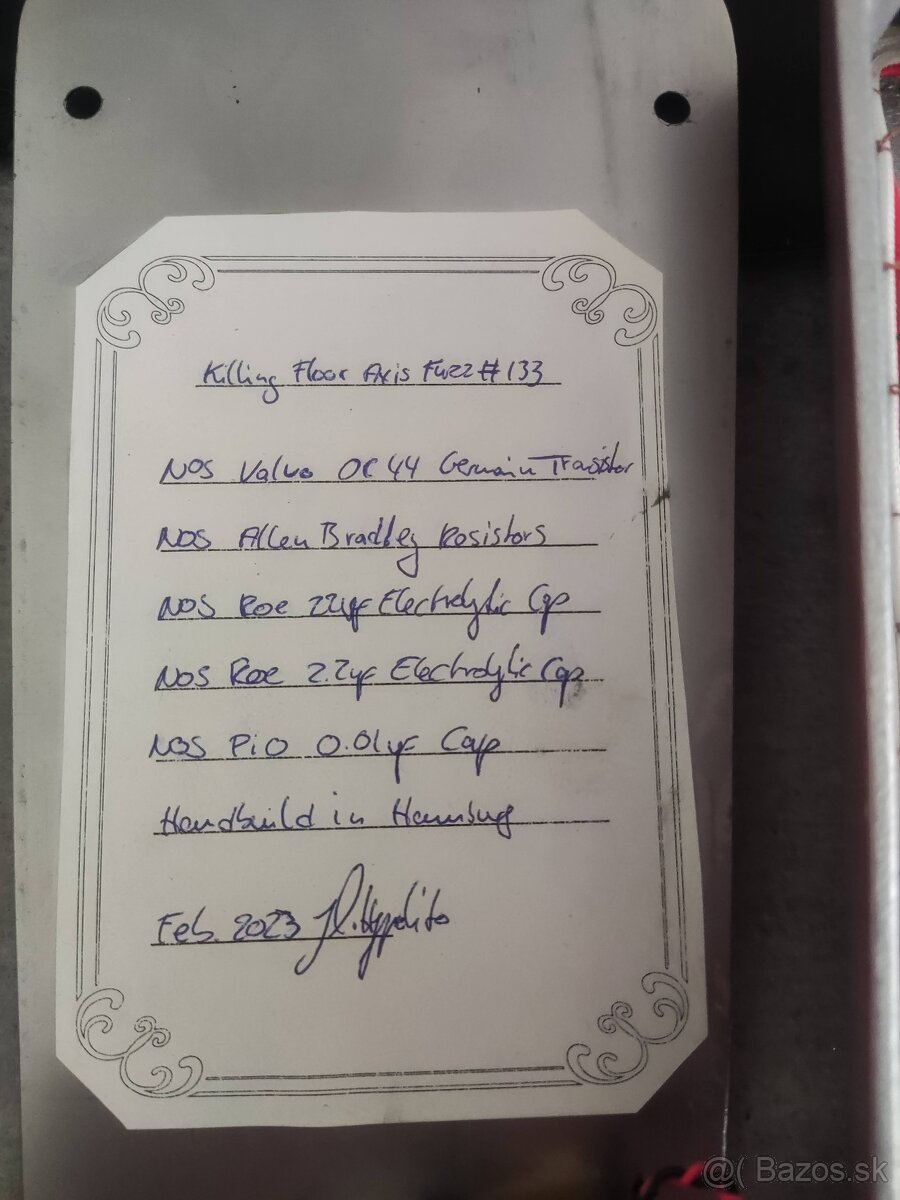 Killing Floor Axis Fuzz #133
NOS Valvo OC44 Germain Transistor
NOS Allen Bradley Resistors
NOS Roe 22µF Electrolytic Cap
NOS Roe 2.2µF Electrolytic Cap
NOS PiO 0.01µF Cap
Handbuild in Hamburg
Feb. 2023
@( Bazos.sk